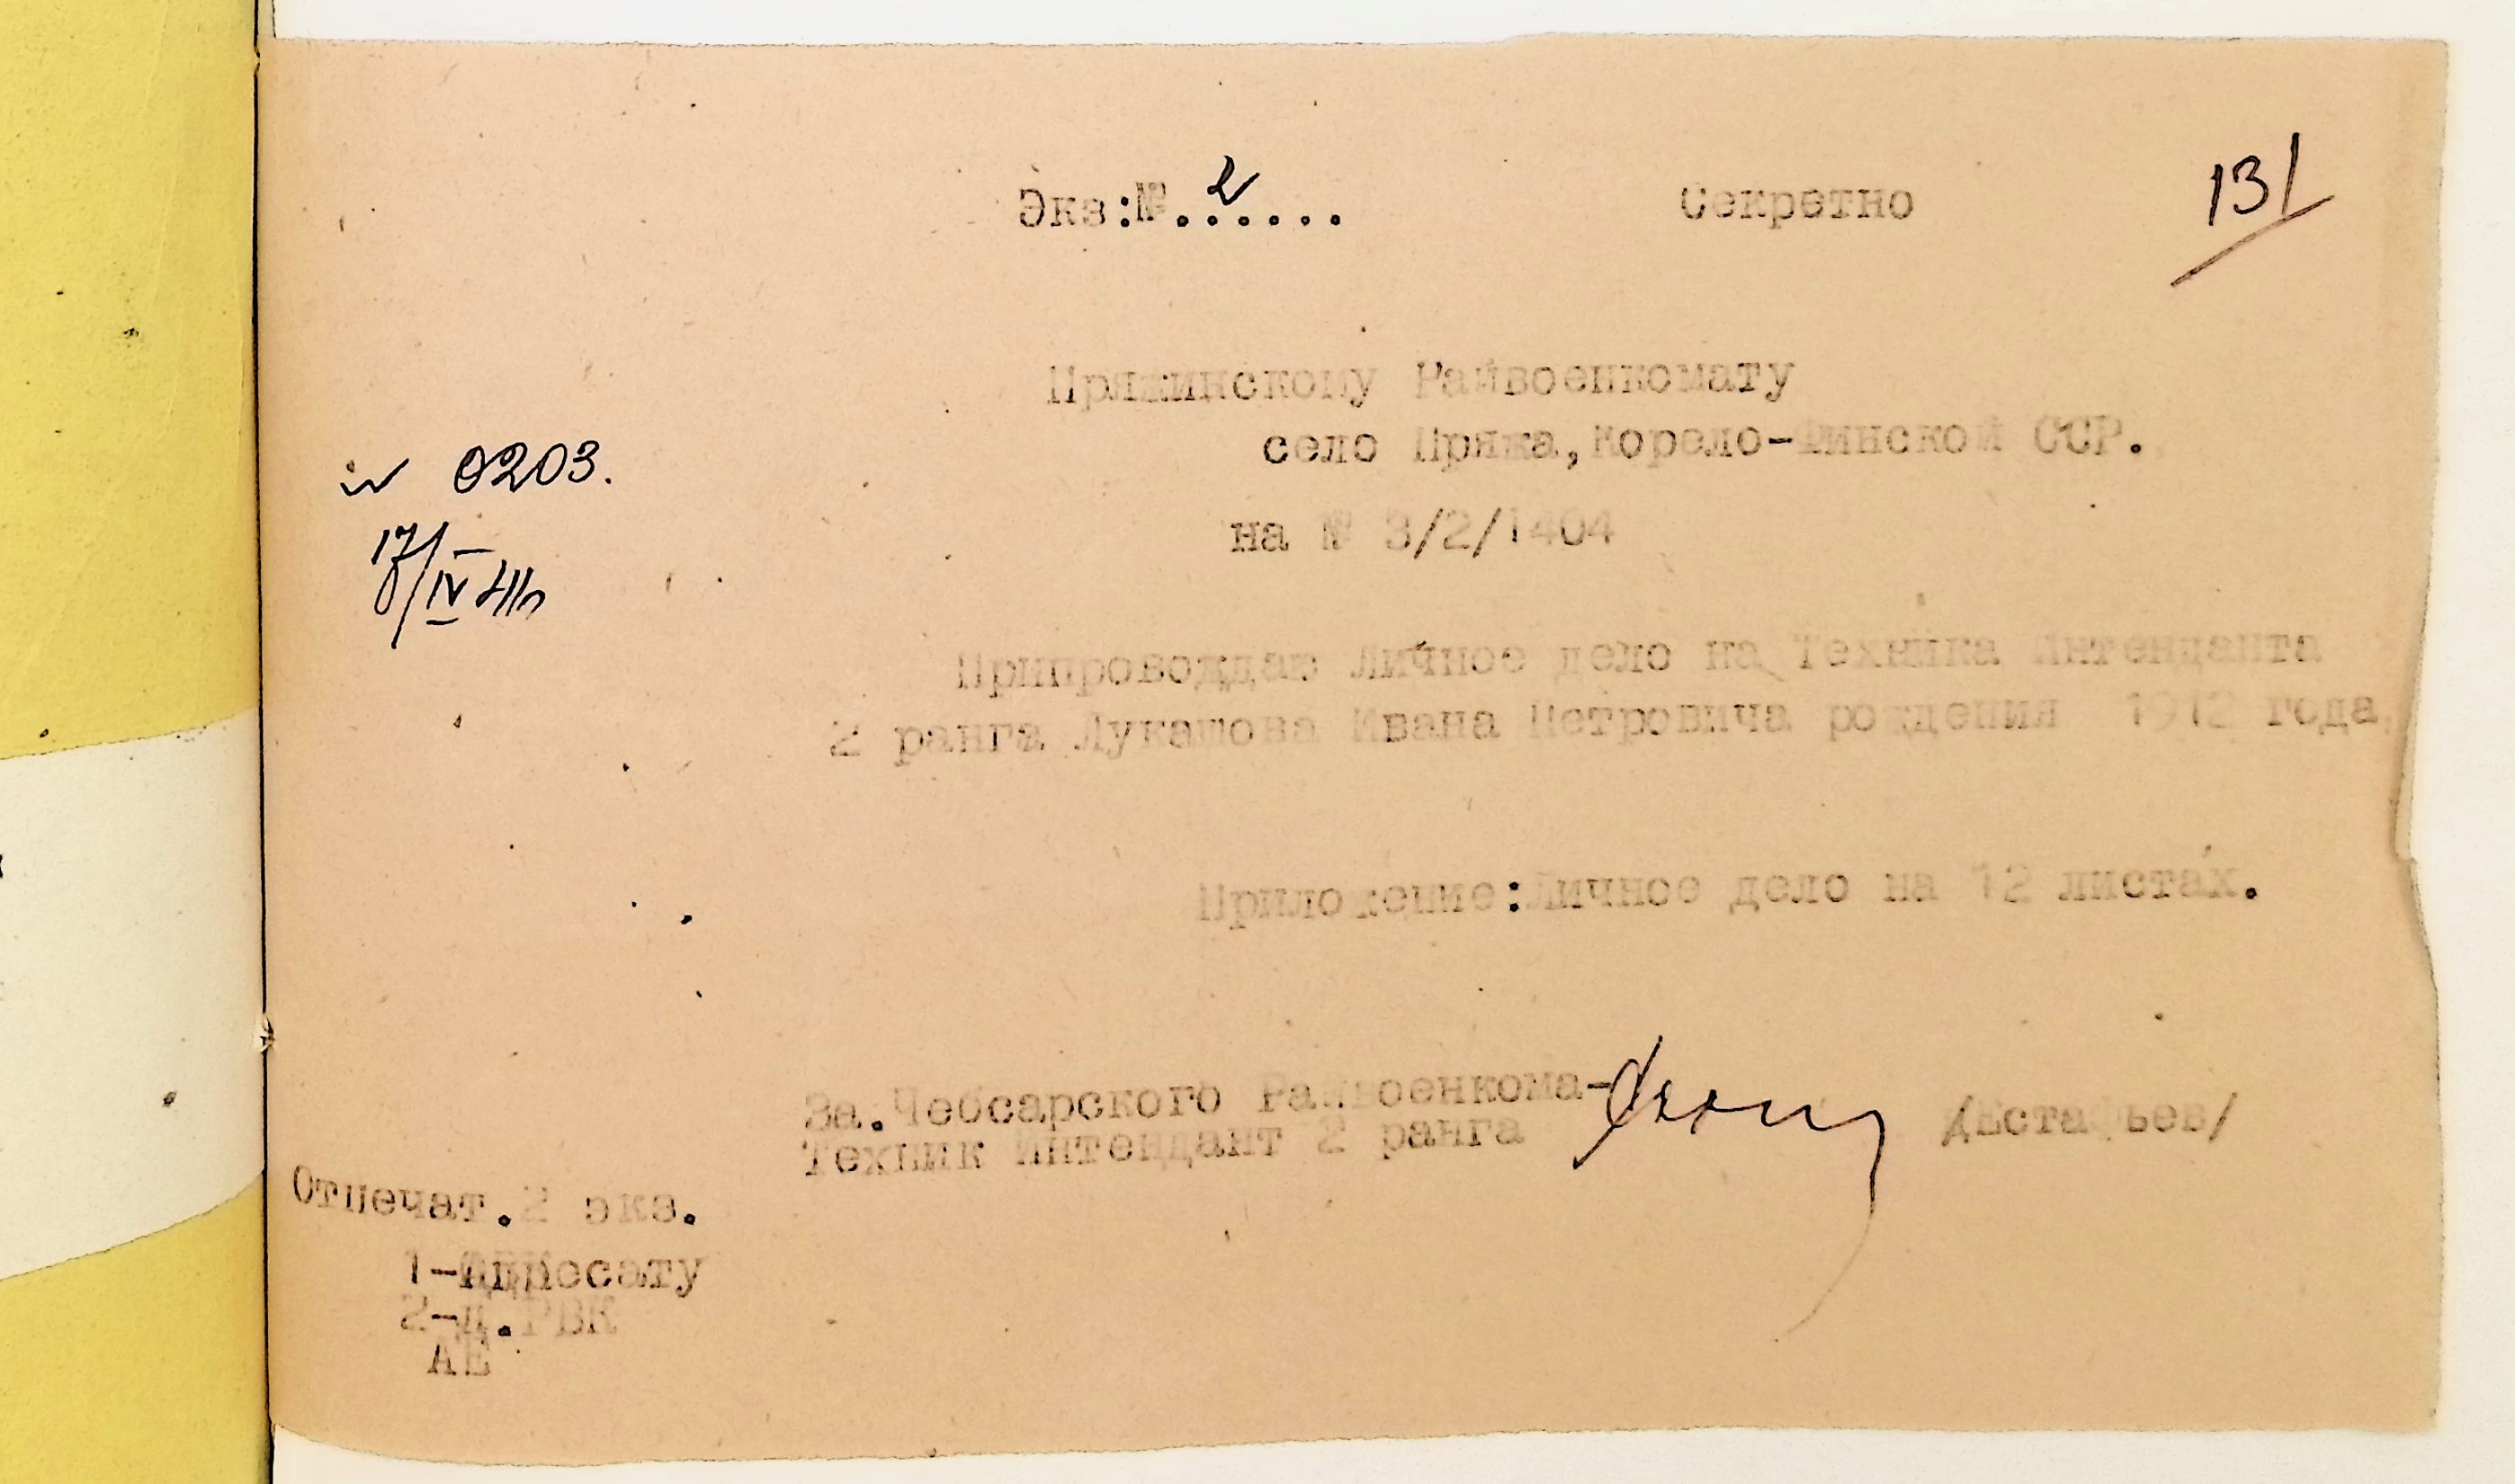 Экз:№..2.... Секретно 131
Пряжинскому Райвоенкомату
село Пряжа, Корело-Финской ССР.
№ 0203.
на № 3/2/1404
17/IV 41г
Припровождаю Личное дело на Техника Интенданта
2 ранга Лукашова Ивана Петровича рождения 1912 года.
Приложение:Личное дело на 12 листах.
За.Чебсарского Райвоенкома-
Техник Интендант 2 ранга /Естафьев/
Отпечат.2 экз.
1-Адресату
2-д.РВК
АЕ